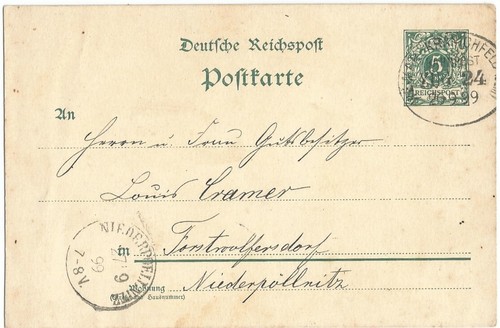 Deutsche Reichspost
Postkarte
5
REICHSPOST
ZUG 24
99
An
Herrn u. Frau Gutsbesitzer
Louis Cramer
in Forstwolfersdorf
Niederpöllnitz
Wohnung
(Straße und Hausnummer)
27 9
99
7-8 N.